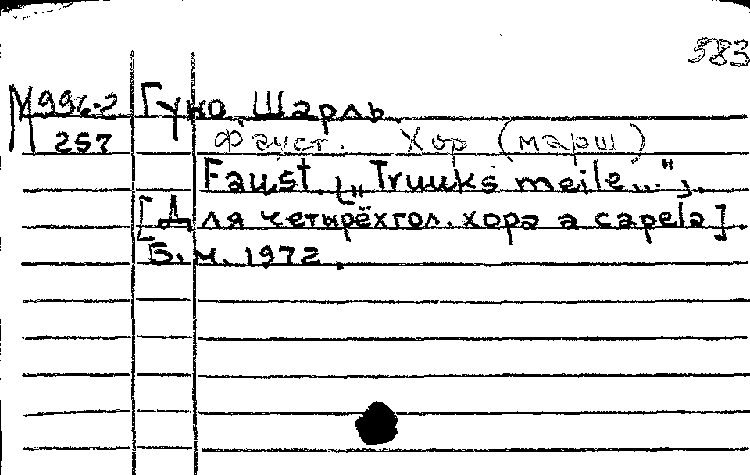 583
М996-2 Гуно, Шарль.
257 Фауст. Хор (марш)
Faust. („Truuks meile...").
[Для четырёхгол. хора a capela].
Б.м. 1972.